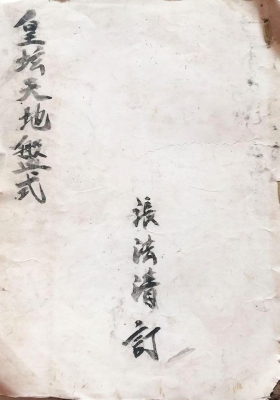 皇坛天地盤式
張法清 訂